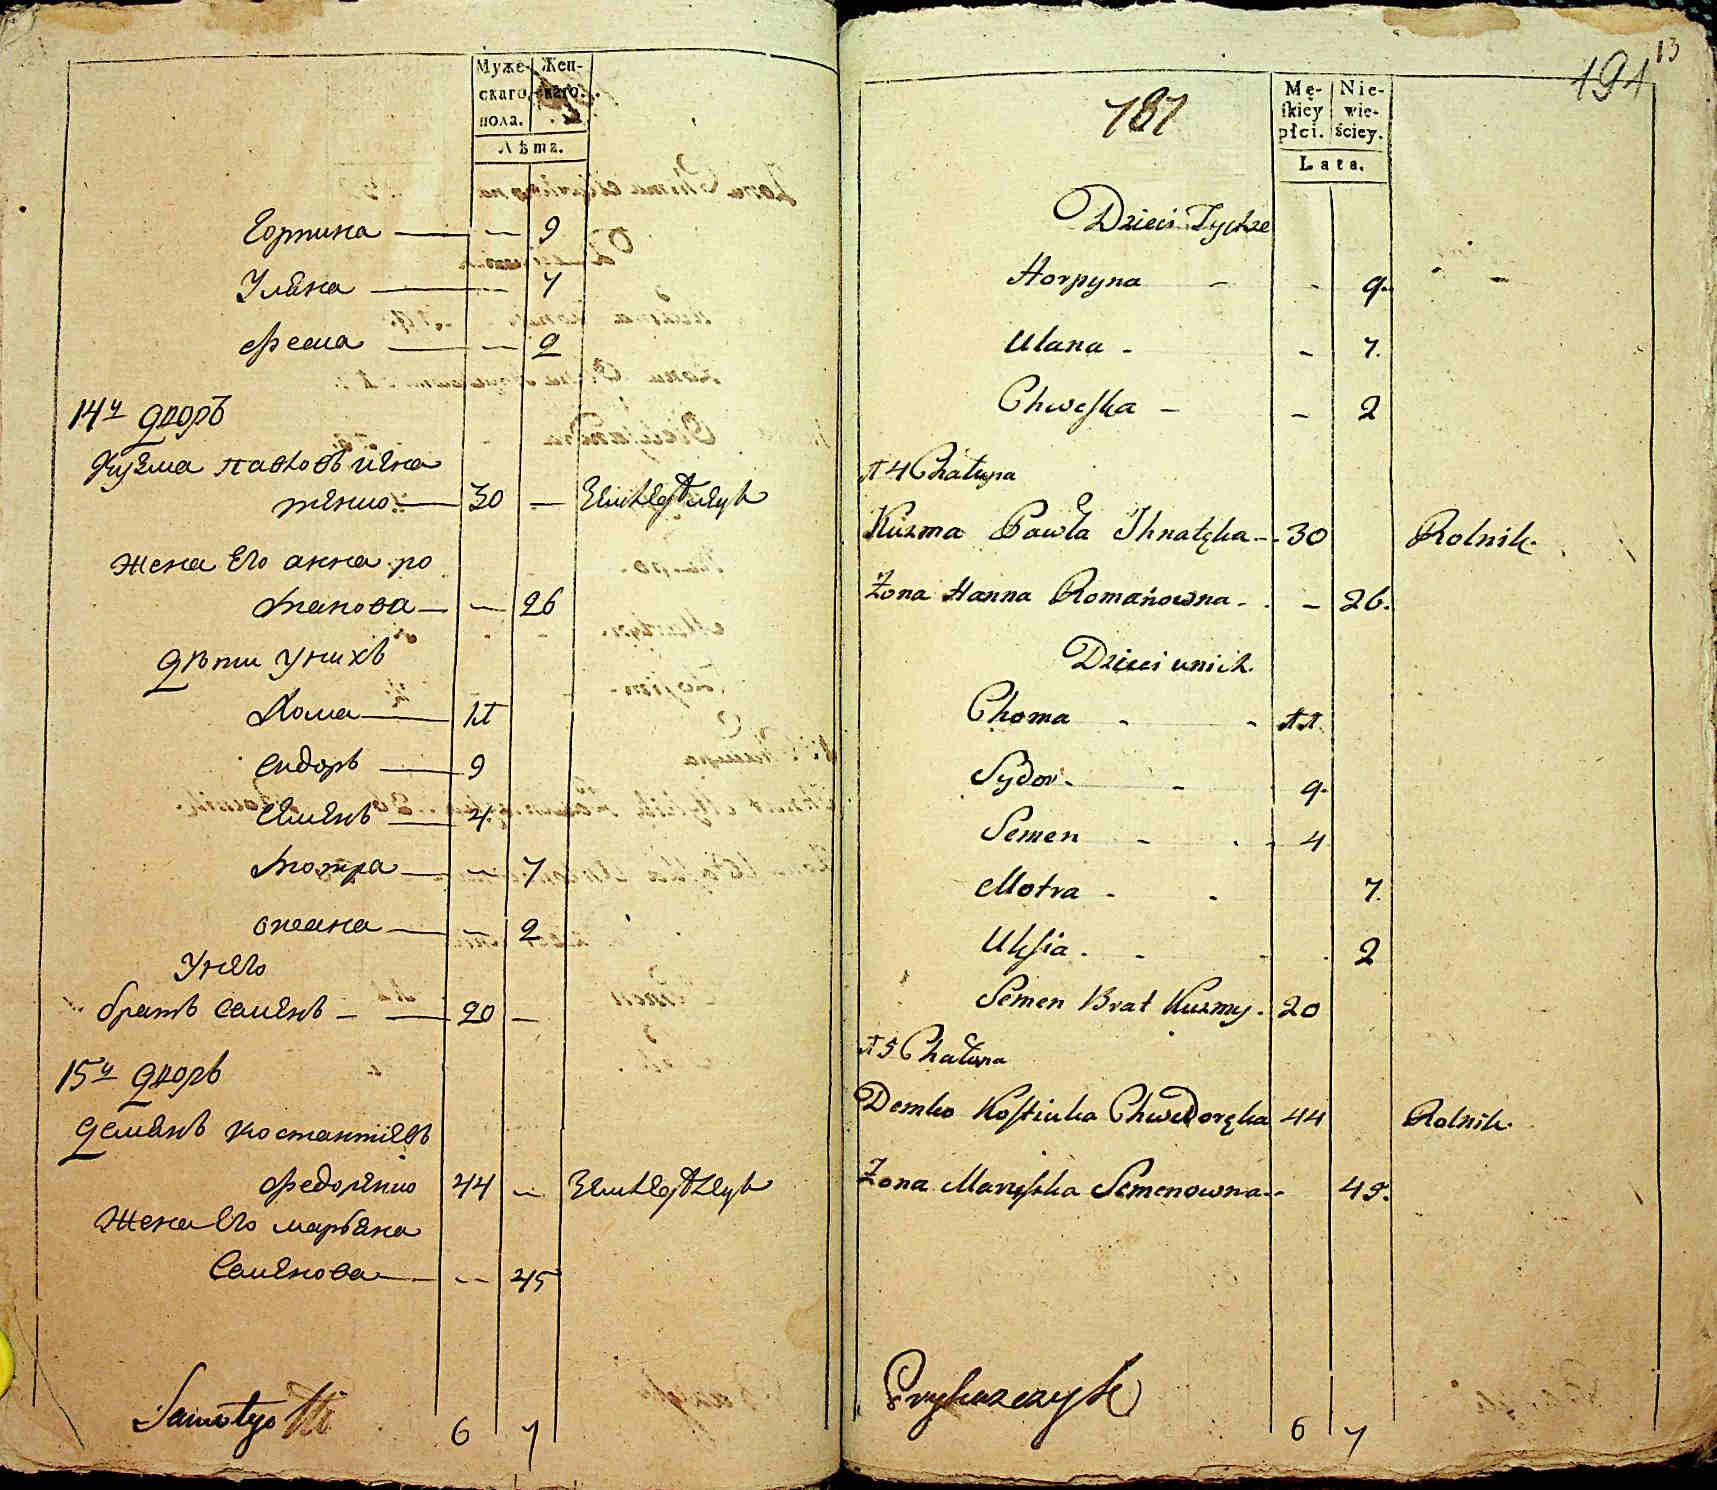 Муже- Жен-
скаго, скаго.
пола.
Лѣта.
Горпина — — 9
Уляна — — 7
Фесма — — 2
14й дворъ
Кузма павловъ игна
тенко — 30 —
жена Его анна ро
манова — — 26
дѣти унихъ
Хома — 11
сидоръ — 9
Семенъ — 4
мотра — — 7
оксана — — 2
Унего
братъ семенъ — — 20 —
15й дворъ
демянъ костантіевъ
федоренко 44 —
жена Его марьяна
Семенова — — 45
6 7
13
191
787
Mę- Nie-
skiey wie-
płci. ściey.
Lata.
Dzieci Tychże
Horpyna - - 9.
Ulana - - 7.
Chweska - - 2
14 Chałupa
Kuzma Pawła Ihnatęka - 30 Rolnik.
Żona Hanna Romanowna - - 26.
Dzieci unich.
Choma - - 11.
Sydor - - 9.
Semen - - 4
Motra - - 7.
Uksia - - 2
Semen Brat Kuzmy. 20
15 Chałupa
Demko Kostiuka Chwedoręka 44 Rolnik.
Żona Maryska Semenowna - 45.
Prykazczyk
6 7